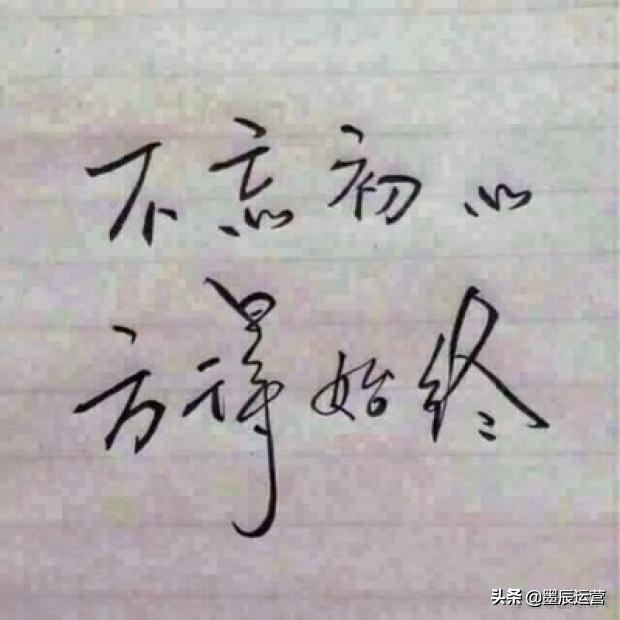 不忘初心
方得始终
头条 @墨辰运营